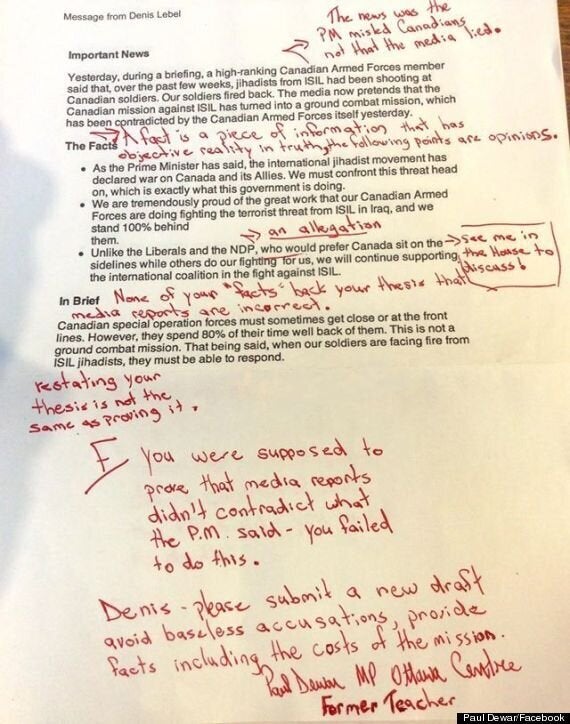 Message from Denis Lebel
The news was the
PM misled Canadians
not that the media lied.
Important News
Yesterday, during a briefing, a high-ranking Canadian Armed Forces member
said that, over the past few weeks, jihadists from ISIL had been shooting at
Canadian soldiers. Our soldiers fired back. The media now pretends that the
Canadian mission against ISIL has turned into a ground combat mission, which
has been contradicted by the Canadian Armed Forces itself yesterday.
A fact is a piece of information that has
objective reality in truth, the following points are opinions.
The Facts
• As the Prime Minister has said, the international jihadist movement has
declared war on Canada and its Allies. We must confront this threat head
on, which is exactly what this government is doing.
• We are tremendously proud of the great work that our Canadian Armed
Forces are doing fighting the terrorist threat from ISIL in Iraq, and we
stand 100% behind
them.
an allegation
• Unlike the Liberals and the NDP, who would prefer Canada sit on the
sidelines while others do our fighting for us, we will continue supporting
the international coalition in the fight against ISIL.
see me in
the House to
discuss!
In Brief
None of your "facts" back your thesis that
media reports are incorrect.
Canadian special operation forces must sometimes get close or at the front
lines. However, they spend 80% of their time well back of them. This is not a
ground combat mission. That being said, when our soldiers are facing fire from
ISIL jihadists, they must be able to respond.
restating your
thesis is not the
same as proving it.
F you were supposed to
prove that media reports
didn't contradict what
the P.M. said - you failed
to do this.
Denis - please submit a new draft
avoid baseless accusations, provide
facts including the costs of the mission.
Paul Dewar MP Ottawa Centre
Former Teacher
Paul Dewar/Facebook